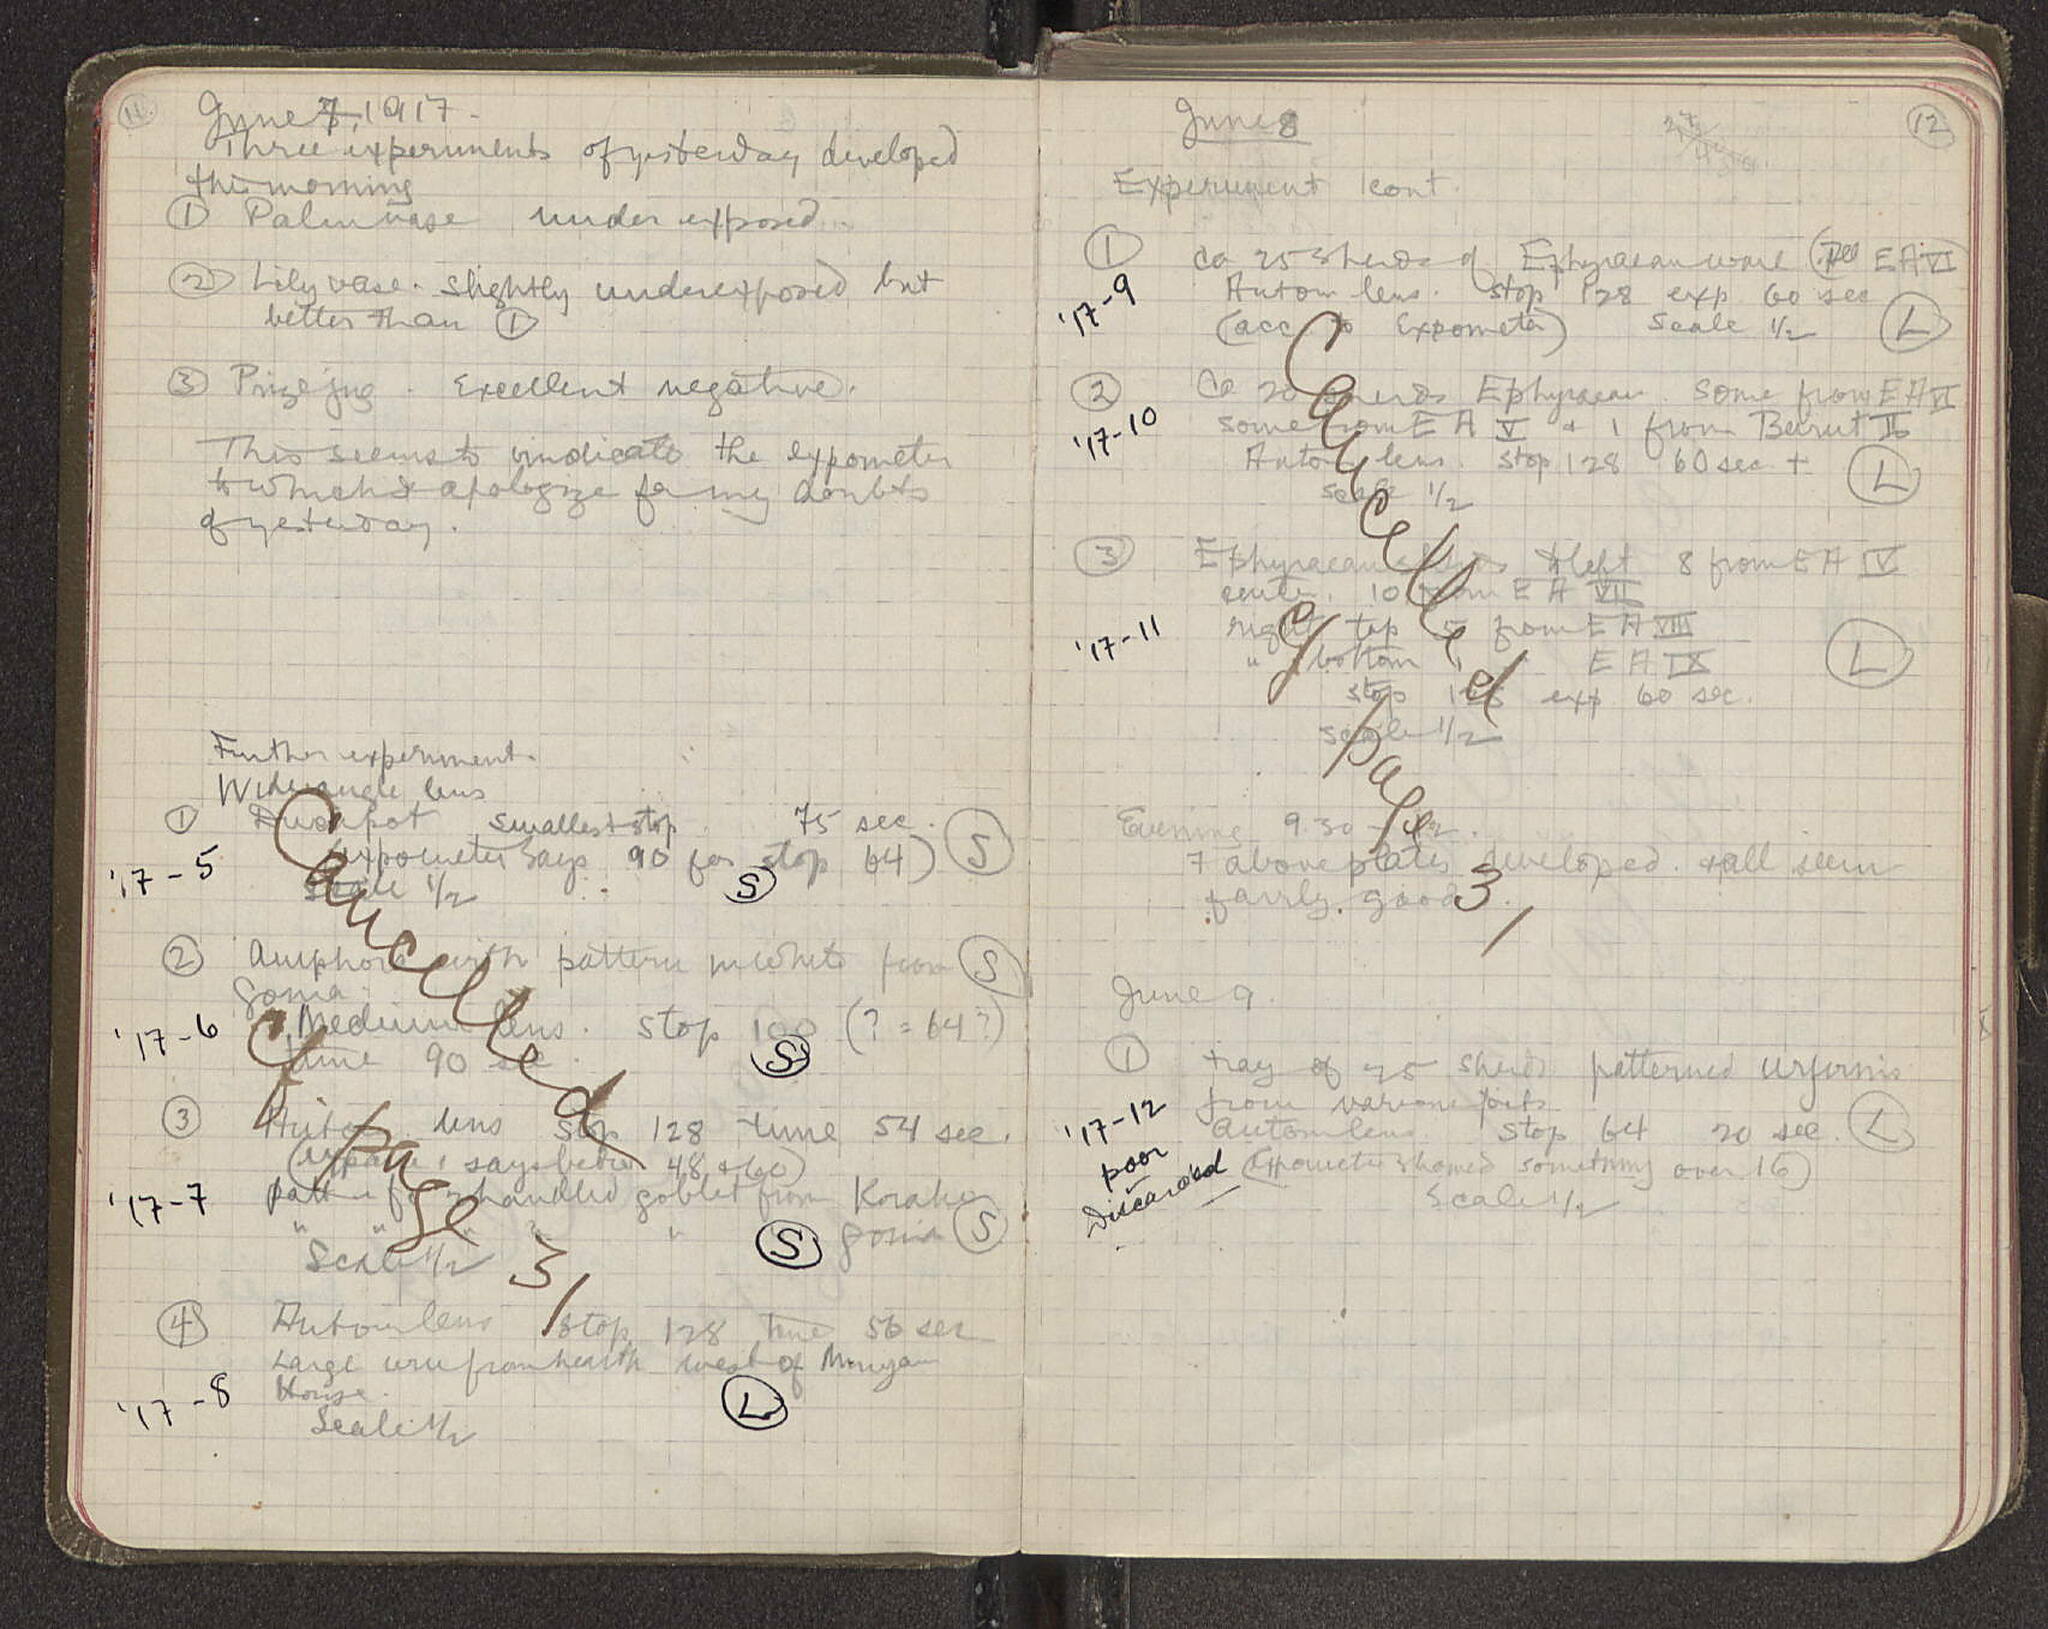 11.
June 7, 1917.
Three experiments of yesterday developed
this morning
① Palm vase under exposed.
② Lily vase. slightly underexposed but
better than ①
③ Prize jug. Excellent negative.
This seems to vindicate the expometer
to which I apologize for my doubts
of yesterday.
Further experiment.
Wide angle lens
① smallest stop. 75 sec. Ⓢ
(expometer says 90 for stop 64)
'17-5 scale 1/2 Ⓢ
② Amphora with pattern in white from Ⓢ
Gonia.
'17-6 Medium lens. Stop 100 (? = 64?)
time 90 sec. Ⓢ
③ Autom lens stop 128 time 54 sec.
( says betw 48 + 60)
'17-7 handled goblet from Korakou
" " " " Ⓢ Gonia Ⓢ
Scale 1/2
④ Autom lens stop 128 time 56 sec
Large urn from hearth west of Minyan
House.
'17-8 Scale 1/2 Ⓛ
Cancelled
cf page
3,
12
June 8
Experiment cont.
① Ca 25 sherds of Ephyraean ware ( EA VI
'17-9 Autom lens. stop 128 exp 60 sec
(acc to Expometer) Scale 1/2 Ⓛ
② Ca 20 sherds Ephyraean. some from EA VI
'17-10 some from EA V + 1 from Beirut II
Autom lens. stop 128 60 sec + Ⓛ
scale 1/2
③ Ephyraean left 8 from EA IV
center. 10 from EA VII
'17-11 right top 5 from EA VIII
" bottom " " EA IX Ⓛ
stop 128 exp 60 sec.
scale 1/2
Cancelled
cf page
3,
Evening 9.30
7 above plates developed. + all seem
fairly good.
June 9.
① tray of 25 sherds patterned Urfirnis
from various pits
'17-12 Autom lens stop 64 20 sec. Ⓛ
poor (Expometer showed something over 16)
Discarded Scale 1/2